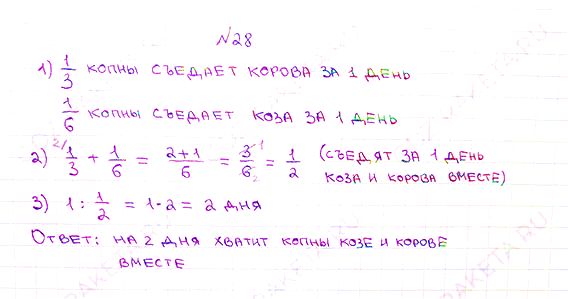 №28
1) 1/3 копны съедает корова за 1 день
1/6 копны съедает коза за 1 день
2) 2/ 1/3 + 1/6 = 2+1/6 = 3/6 1/2 = 1/2 (съедят за 1 день
коза и корова вместе)
3) 1 : 1/2 = 1·2 = 2 дня
Ответ: на 2 дня хватит копны козе и корове
вместе